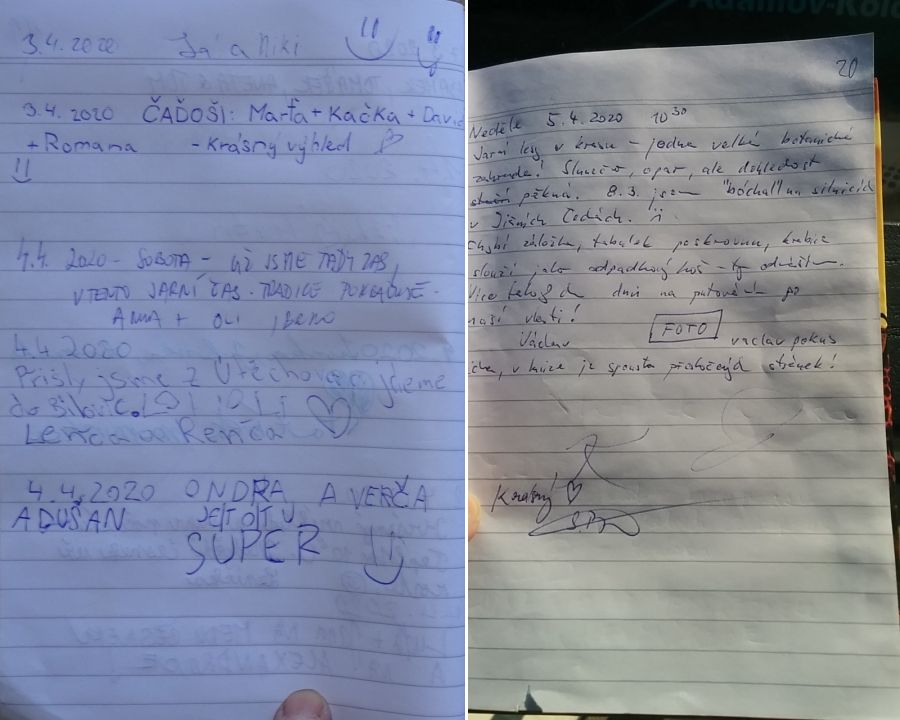 3.4.2020 Já a Niki
3.4.2020 ČAĎOŠI: Marťa + Kačka + David
+ Romana - Krásný výhled
4.4. 2020 - SOBOTA - UŽ JSME TADY ZAS,
V TENTO JARNÍ ČAS. TRADICE POKRAČUJE.
ANNA + OLI
4.4.2020
Přišli jsme z Útěchova a jdeme
do Bílovic.
Lenča a Renča
4.4.2020 ONDRA A VERČA
A DUŠAN JEJT OJT U
SUPER
Adamov-Kolo
20
Neděle 5.4.2020 10 30
Jarní lesy v krasu - jedna velká botanická
zahrada! Sluníčko, opar, ale dohlednost
pěkná. 8.3. jsem "bóchal" na silnicích
v Jižních Čechách.
Chybí záložka, tabulek poskrovnu, krabice
slouží jako odpadkový koš - ty odvážím.
Více takových dní na putování po
naší vlasti!
Václav FOTO vaclav pokus
v knize je spousta přeskočených stránek!
Krásný